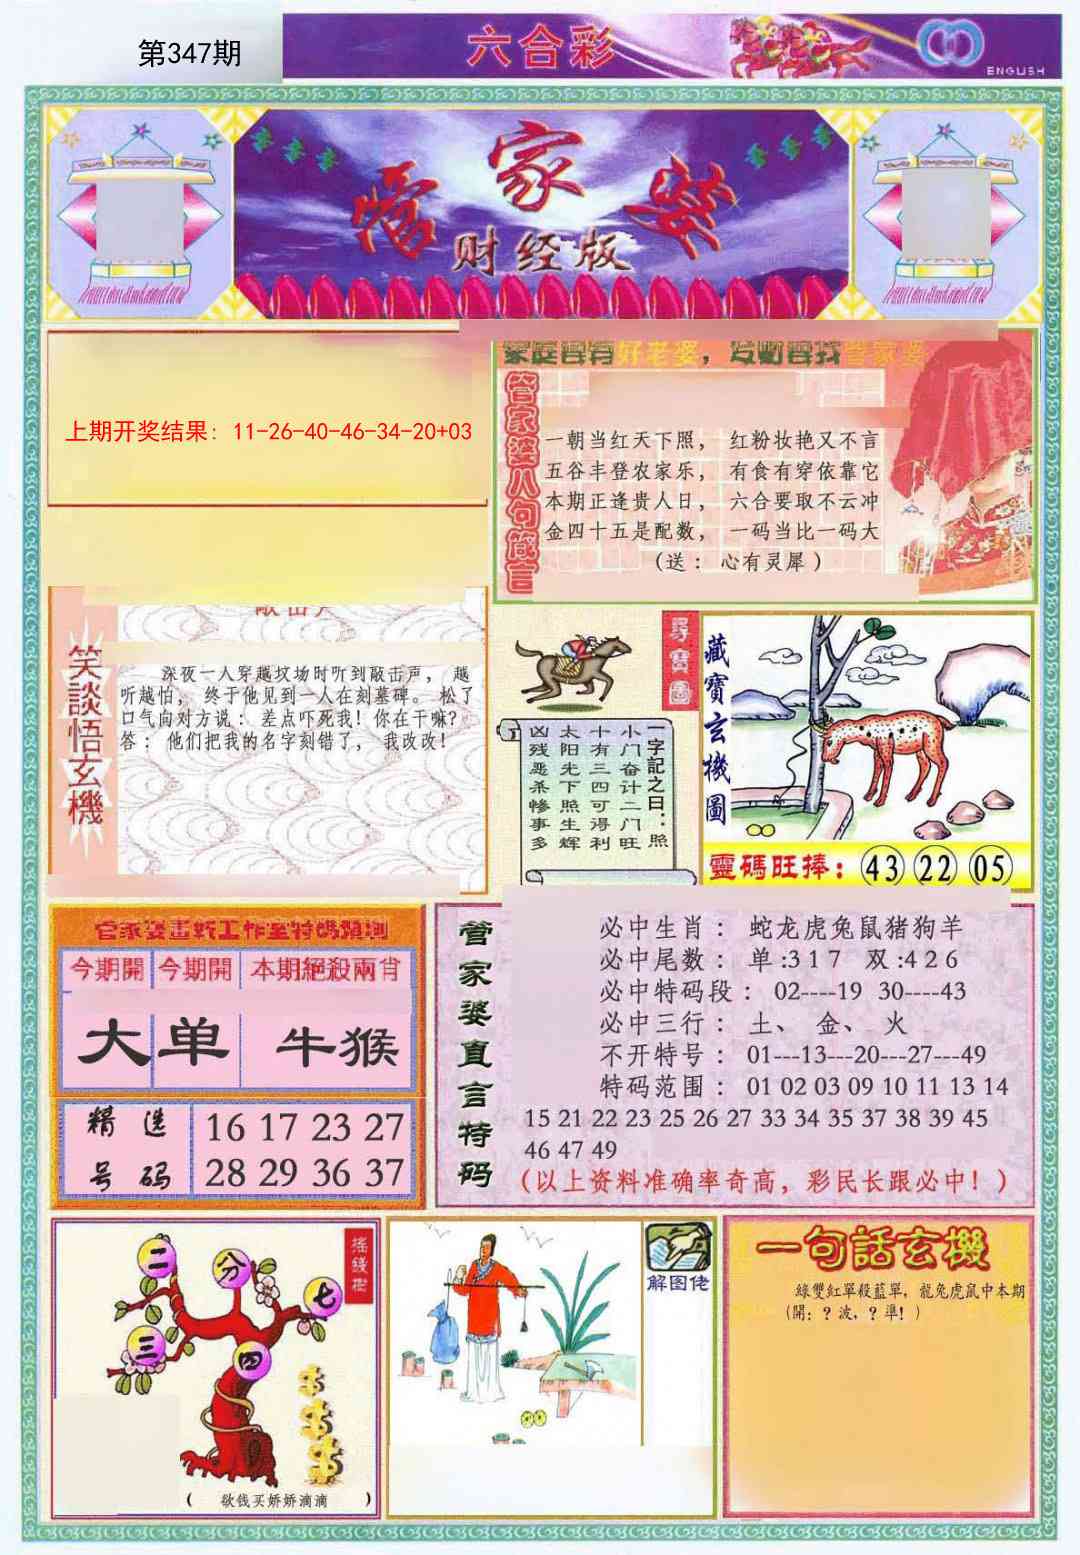 第347期
六合彩
ENGLISH
管家婆
财经版
上期开奖结果: 11-26-40-46-34-20+03
管家婆八句箴言
一朝当红天下照， 红粉妆艳又不言
五谷丰登农家乐， 有食有穿依靠它
本期正逢贵人日， 六合要取不云冲
金四十五是配数， 一码当比一码大
(送： 心有灵犀 )
笑談悟玄機
深夜一人穿越坟场时听到敲击声， 越
听越怕， 终于他见到一人在刻墓碑。 松了
口气向对方说： 差点吓死我！你在干嘛？
答： 他们把我的名字刻错了， 我改改！
尋寶圖
一字記之曰：照
小门奋计二门旺
十有三四可得利
太阳光下照生辉
凶残恶杀惨事多
藏寶玄機圖
靈碼旺捧：43 22 05
管家婆畫虾工作室特碼預測
今期開 今期開 本期絕殺兩肖
大 单 牛猴
精选号码
16 17 23 27
28 29 36 37
管家婆直言特码
必中生肖： 蛇龙虎兔鼠猪狗羊
必中尾数： 单:317 双:426
必中特码段： 02----19 30----43
必中三行： 土、 金、 火
不开特号： 01---13---20---27---49
特码范围： 01 02 03 09 10 11 13 14
15 21 22 23 25 26 27 33 34 35 37 38 39 45
46 47 49
(以上资料准确率奇高，彩民长跟必中！)
搖錢樹
二 分 七
三 四
( 欲钱买娇娇滴滴 )
解图佬
一句話玄機
綠雙紅單殺藍單，龍兔虎鼠中本期
(開：？波，？準！)